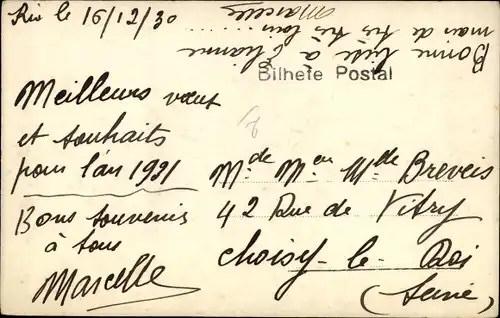 Rio le 16/12/30
Bilhete Postal
Meilleurs vœux
et souhaits
pour l'an 1931
Bons souvenirs
à tous
Marcelle
Mde Mr Mlle Breveis
42 Rue de Vitry
Choisy-le-Roi
(Seine)
Bonne fête à
de très loin.....
Marcelle